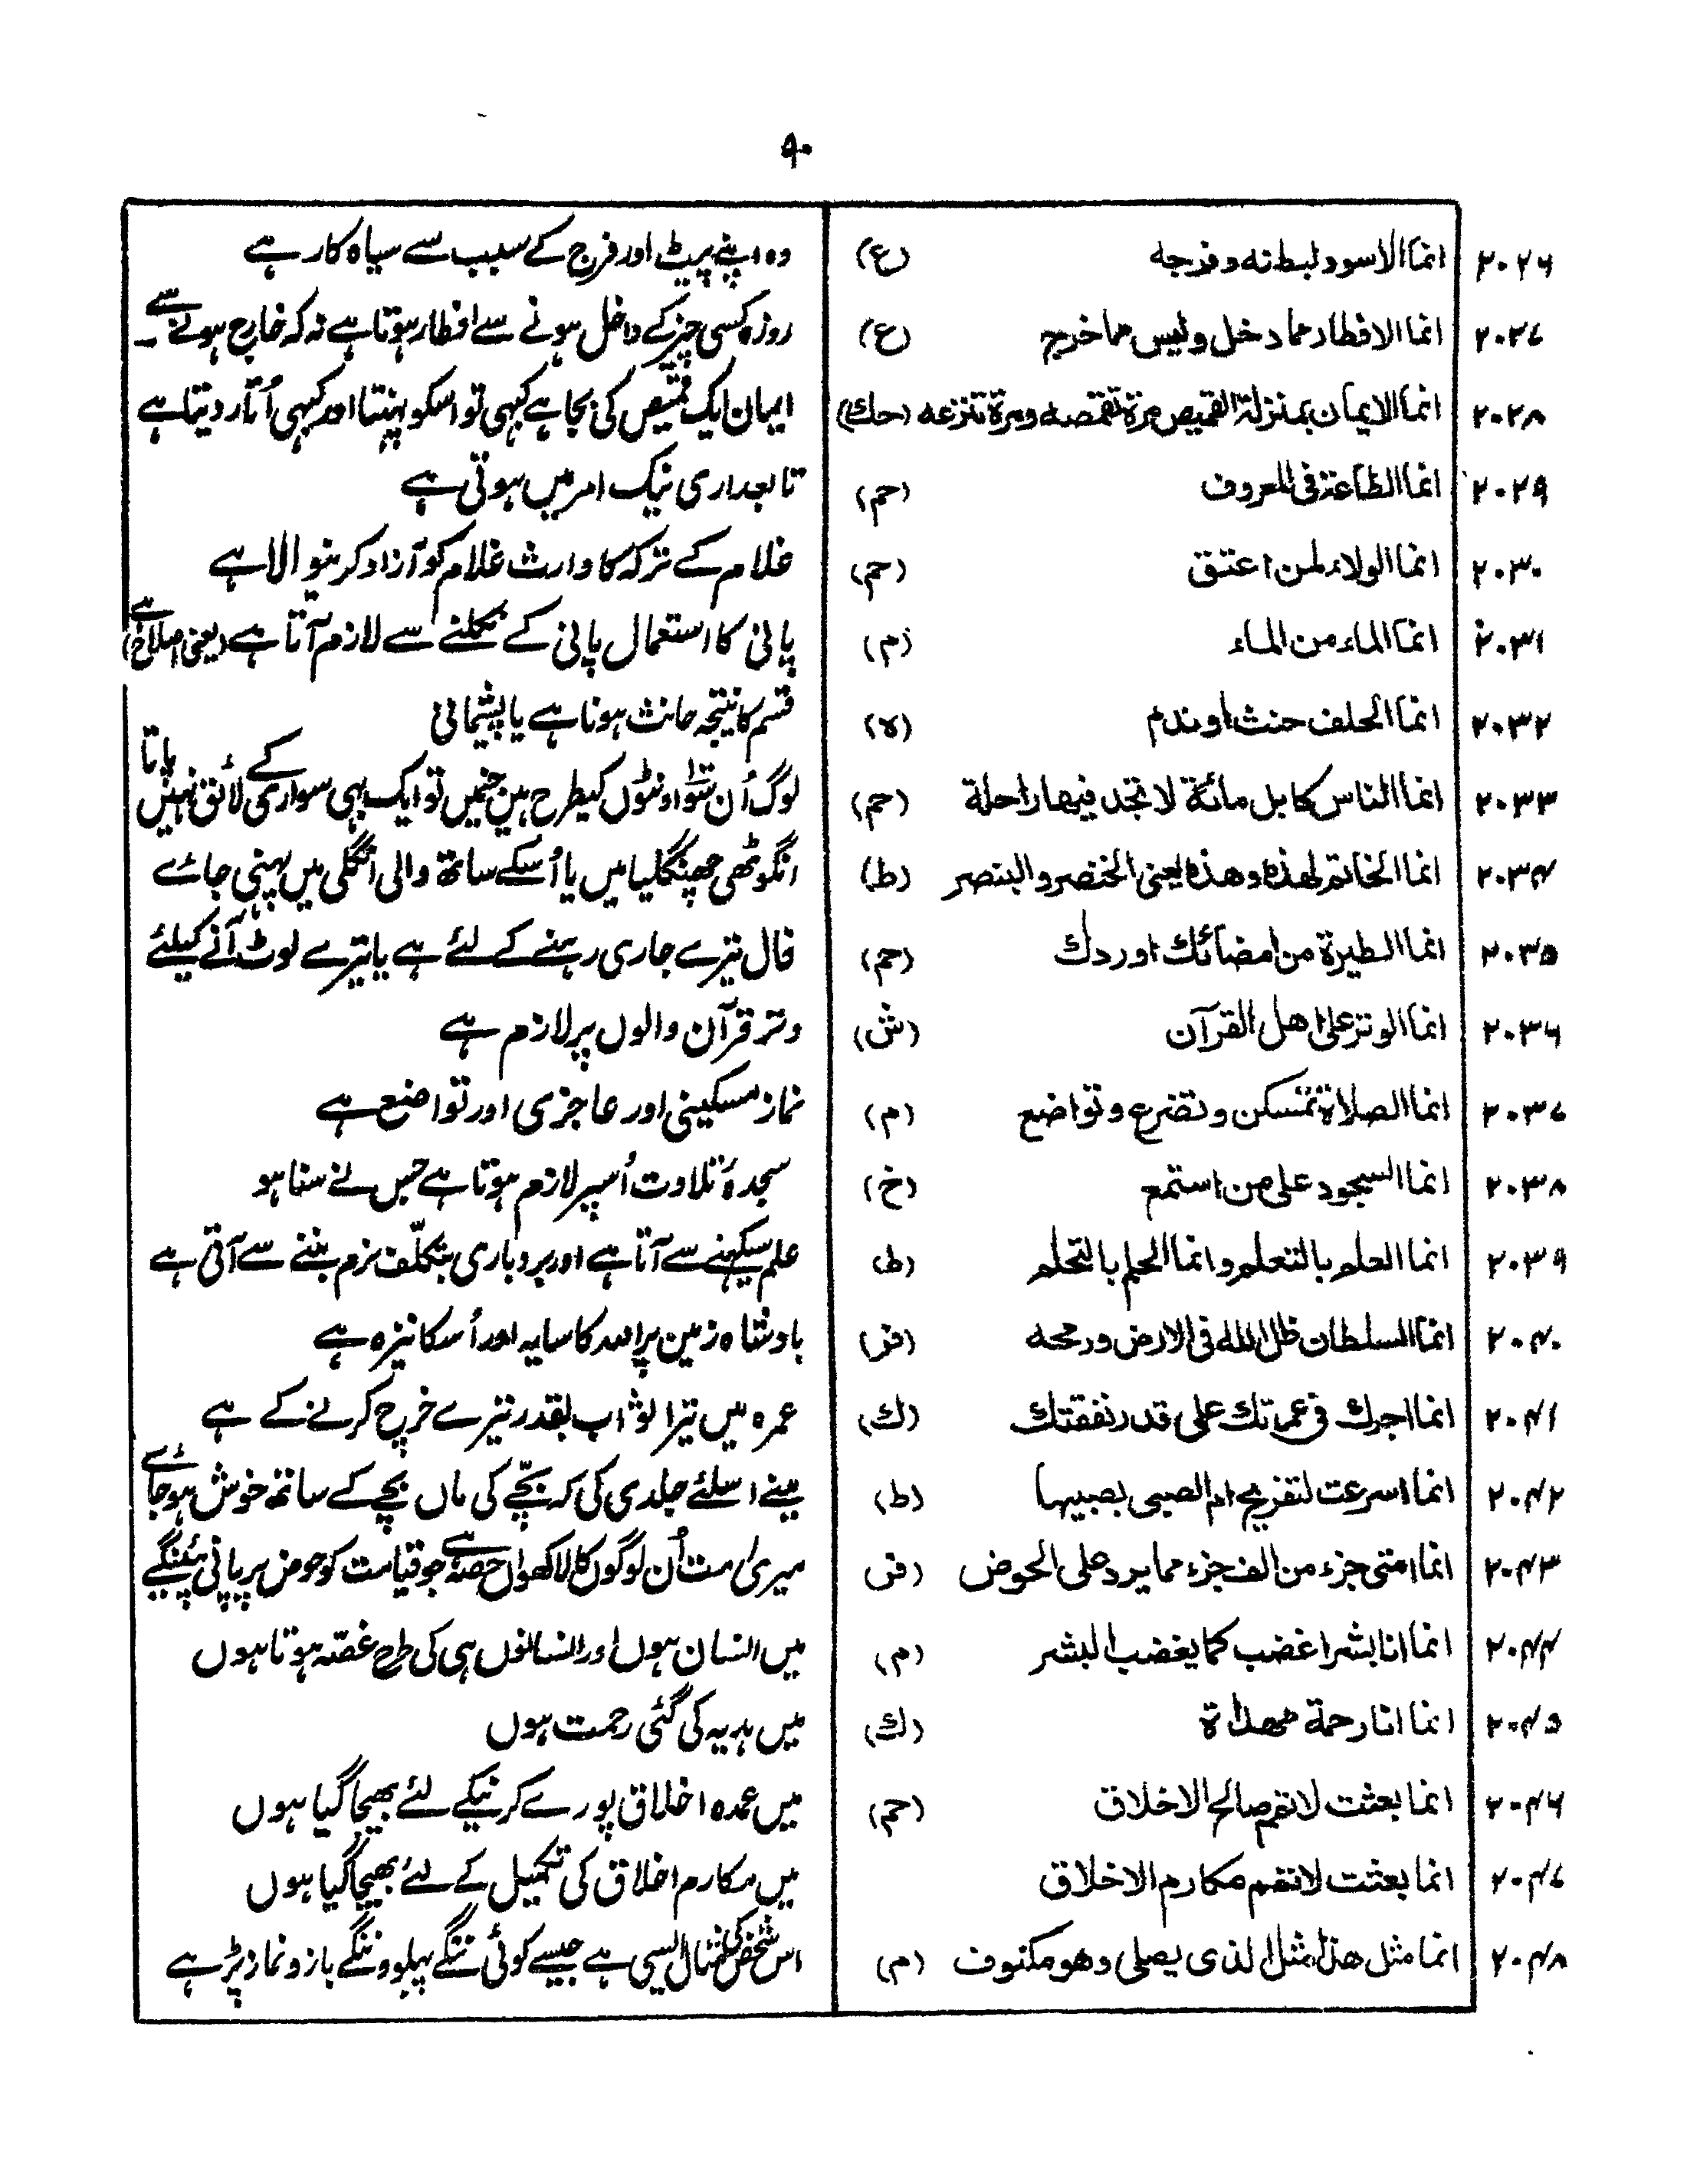 ۹۰
۲۰۲۶ انما الاسود لبطنه وفرجه (ع) وہ اپنے پیٹ اور فرج کے سبب سے سیاہ کار ہے
۲۰۲۷ انما الافطار مما دخل وليس مما خرج (ع) روزہ کسی چیز کے داخل ہونے سے افطار ہوتا ہے نہ کہ خارج ہونے سے ۔
۲۰۲۸ انما الايمان بمنزلة القميص مرة تقمصه ومرة تنزعه (حك) ایمان ایک قمیص کی بجا ہے کبھی تو اسکو پہنتا اور کبھی اُتار دیتا ہے
۲۰۲۹ انما الطاعة فى المعروف (حم) تابعداری نیک امر میں ہوتی ہے
۲۰۳۰ انما الولاء لمن اعتق (حم) غلام کے ترکہ کا وارث غلام کو آزاد کرنیوالا ہے
۲۰۳۱ انما الماء من الماء (م) پانی کا استعمال پانی کے نکلنے سے لازم آتا ہے (یعنی
۲۰۳۲ انما الحلف حنث او ندم (ه) قسم کا نتیجہ حانث ہونا ہے یا پشیمانی
۲۰۳۳ انما الناس كابل مائة لا تجد فيها راحلة (حم) لوگ اُن سَو اونٹوں کیطرح ہین جنمیں تو ایک بہی سواری کے لائق نہیں پاتا
۲۰۳۴ انما الخاتم لهذه وهذه يعنى الخنصر والبنصر (ط) انگوٹھی چھنگلیا میں یا اُسکے ساتھ والی انگلی میں پہنی جائے
۲۰۳۵ انما الطيرة من امضائك اوردك (حم) فال تیرے جاری رہنے کے لئے ہے یا تیرے لوٹ آنے کیلئے
۲۰۳۶ انما الوتر على اهل القرآن (ش) وتر قرآن والوں پر لازم ہے
۲۰۳۷ انما الصلاة تمسكن وتضرع وتواضع (م) نماز مسکینی اور عاجزی اور تواضع ہے
۲۰۳۸ انما السجود على من استمع (خ) سجدۂ تلاوت اُسپر لازم ہوتا ہے جس نے سنا ہو
۲۰۳۹ انما العلم بالتعلم وانما الحلم بالتحلم (ط) علم سیکہنے سے آتا ہے اور بردباری بتکلّف نرم بننے سے آتی ہے
۲۰۴۰ انما السلطان ظل الله فى الارض ورمحه (فر) بادشاہ زمین پر اللہ کا سایہ اور اُسکا نیزہ ہے
۲۰۴۱ انما اجرك فى عمرتك على قدر نفقتك (ك) عمرہ میں تیرا ثواب بقدر تیرے خرچ کرنے کے ہے
۲۰۴۲ انما اسرعت لتفريح ام الصبى بصبيها (ط) مینے اسلئے جلدی کی کہ بچّے کی ماں بچے کے ساتھ خوش ہوجائے
۲۰۴۳ انما امتى جزء من الف جزء مما يرد على الحوض (فر) میری امت اُن لوگوں کا لاکھواں حصّہ ہے جو قیامت کو حوض پر پانی پئینگے
۲۰۴۴ انما انا بشر اغضب كما يغضب البشر (م) میں انسان ہوں اور انسانوں ہی کی طرح غصّہ ہوتا ہوں
۲۰۴۵ انما انا رحمة مهداة (ك) میں ہدیہ کی گئی رحمت ہوں
۲۰۴۶ انما بعثت لاتمم صالح الاخلاق (حم) میں عمدہ اخلاق پورے کرنیکے لئے بھیجا گیا ہوں
۲۰۴۷ انما بعثت لاتمم مكارم الاخلاق میں مکارم اخلاق کی تکمیل کے لئے بھیجا گیا ہوں
۲۰۴۸ انما مثل هذا مثل الذى يصلى وهو مكتوف (م) اس شخص کی مثال ایسی ہے جیسے کوئی ننگے پہلو و ننگے بازو نماز پڑہے